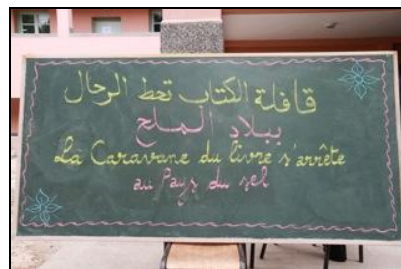 قافلة الكتاب تحط الرحال
ببلاد الملح
La Caravane du livre s'arrête
au Pays du sel